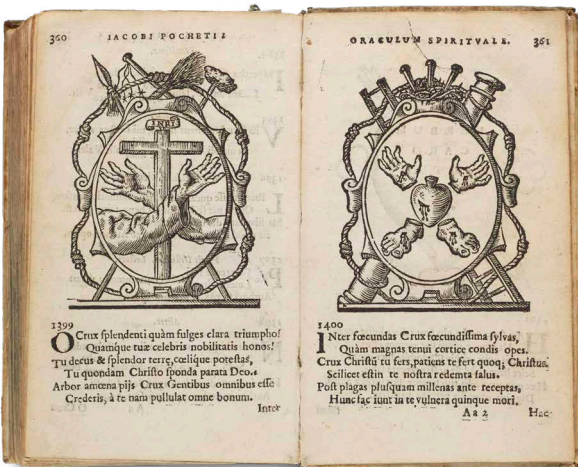 360 IACOBI POCHETII
INRI
1399
O Crux splendenti quàm fulges clara triumpho!
Quamque tuæ celebris nobilitatis honos!
Tu decus & splendor terrę, cœlique potestas,
Tu quondam Christo sponda parata Deo.
Arbor amœna pijs Crux Gentibus omnibus esse
Crederis, à te nam pullulat omne bonum.
Inter
ORACULUM SPIRITVALE. 361
1400
INter fœcundas Crux fœcundissima sylvas,
Quàm magnas tenui cortice condis opes.
Crux Christū tu fers, patiens te fert quoq; Christus.
Scilicet est in te nostra redemta salus.
Post plagas plusquam millenas ante receptas,
Hunc fac iunt in te vulnera quinque mori.
Aa 2 Hac